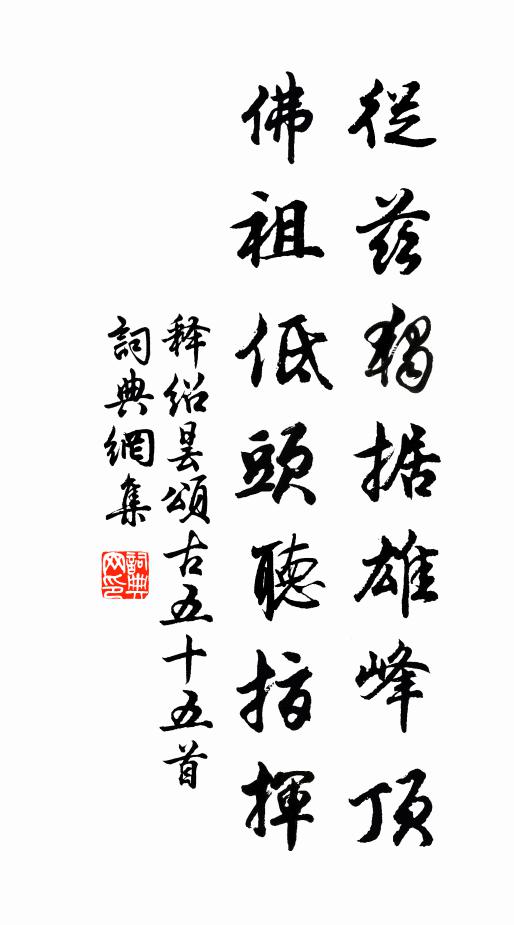 從茲獨据雄峰頂
佛祖低頭聽指揮
释紹曇頌古五十五首
詞典網集
詞典
网印